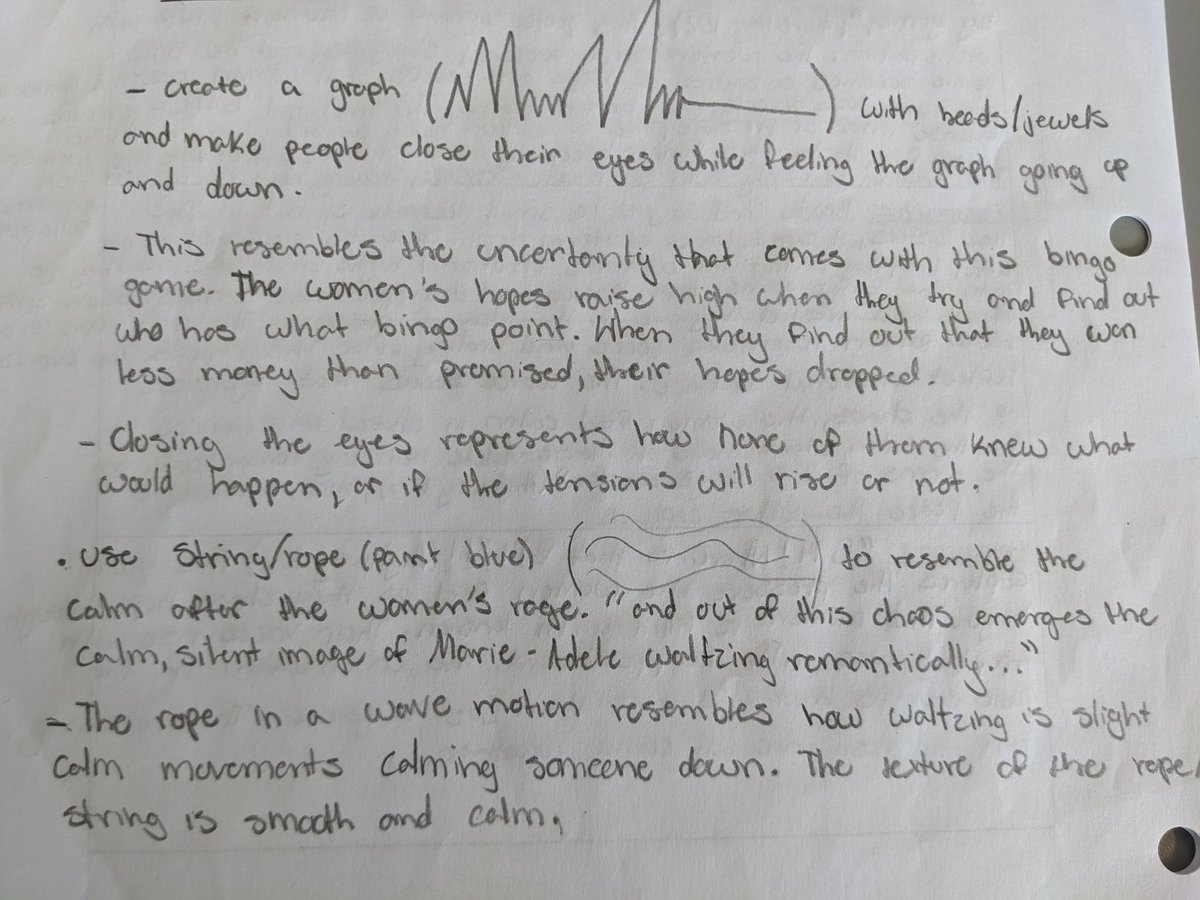 - create a graph ( ) with beeds/jewels
and make people close their eyes while feeling the graph going up
and down.
- This resembles the uncertainty that comes with this bingo
game. The women's hopes raise high when they try and find out
who has what bingo point. When they find out that they won
less money than promised, their hopes dropped.
- Closing the eyes represents how none of them knew what
would happen, or if the tensions will rise or not.
• Use string/rope (paint blue) ( ) to resemble the
calm after the women's rage. "and out of this chaos emerges the
calm, silent image of Marie-Adele waltzing romantically..."
- The rope in a wave motion resembles how waltzing is slight
calm movements calming someone down. The texture of the rope/
string is smooth and calm.